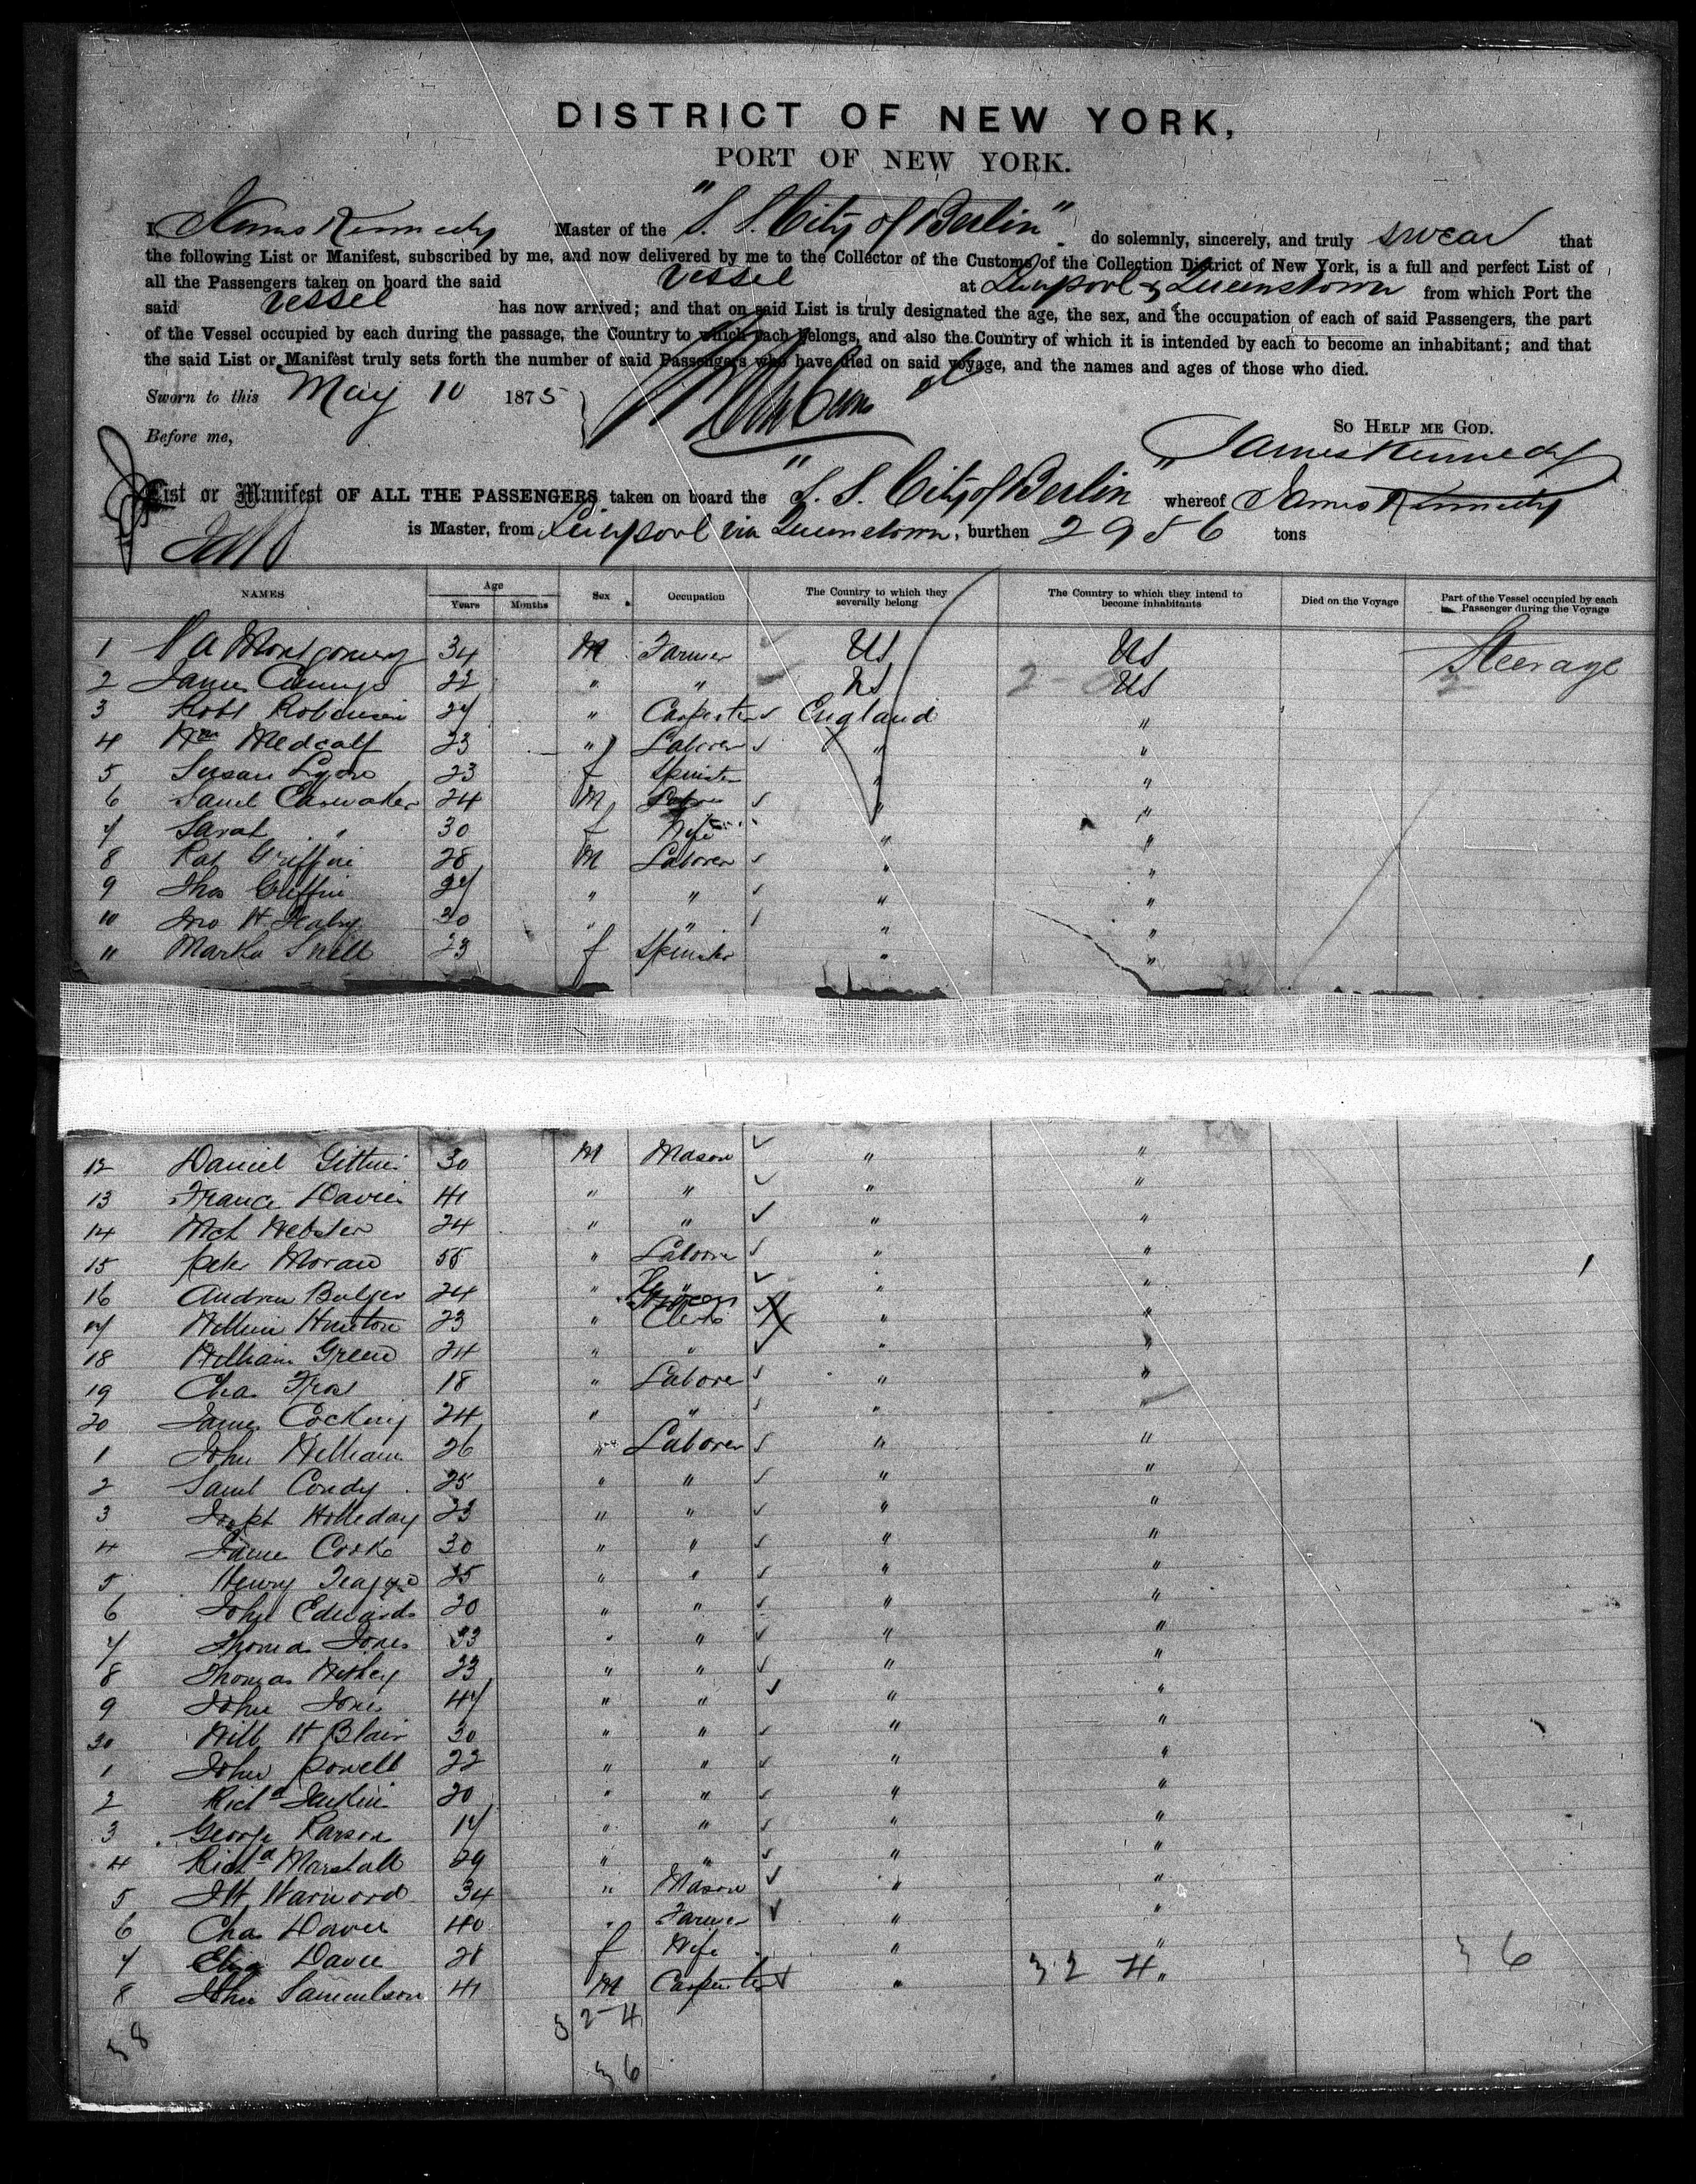 DISTRICT OF NEW YORK,
PORT OF NEW YORK.
I James Kennedy Master of the "S. S. City of Berlin" do solemnly, sincerely, and truly swear that
the following List or Manifest, subscribed by me, and now delivered by me to the Collector of the Customs of the Collection District of New York, is a full and perfect List of
all the Passengers taken on board the said vessel at Liverpool & Queenstown from which Port the
said vessel has now arrived; and that on said List is truly designated the age, the sex, and the occupation of each of said Passengers, the part
of the Vessel occupied by each during the passage, the Country to which each belongs, and also the Country of which it is intended by each to become an inhabitant; and that
the said List or Manifest truly sets forth the number of said Passengers who have died on said voyage, and the names and ages of those who died.
Sworn to this May 10 1875
So Help me God.
Before me,
James Kennedy
List or Manifest OF ALL THE PASSENGERS taken on board the "S. S. City of Berlin" whereof James Kennedy
is Master, from Liverpool via Queenstown, burthen 2956 tons
NAMES Age Years Months Sex Occupation The Country to which they severally belong The Country to which they intend to become inhabitants Died on the Voyage Part of the Vessel occupied by each Passenger during the Voyage
1 A Montgomery 34 M Farmer US US Steerage
2 James 22 " " US US
3 Robt Robinson 27 " Carpenter England "
4 Wm Medcalf 23 " Laborer " "
5 Susan Lyon 23 f Spinster " "
6 Saml Earwaker 24 M " "
7 Sarah " 30 f Wife " "
8 Pat Griffin 28 M Laborer " "
9 Thos Griffin 27 " " " "
10 Jno H 30 " " " "
11 Martha Snell 23 f Spinster " "
12 Daniel 30 M Mason " "
13 Francis Davies 41 " " " "
14 Webster 24 " " " "
15 Peter Moran 55 " Laborer " "
16 Andrew Bulger 24 " " "
17 William 23 " Clerk " "
18 William Green 24 " " " "
19 Chas 18 " Laborer " "
20 James Cocking 24 " " " "
1 John William 26 " Laborer " "
2 Saml Condy 25 " " " "
3 Holleday 23 " " " "
4 James Cook 30 " " " "
5 Henry 25 " " " "
6 John Edwards 20 " " " "
7 Thomas Jones 33 " " " "
8 Thomas 23 " " " "
9 John Jones 47 " " " "
30 Will H Blair 30 " " " "
1 John Powell 22 " " " "
2 Richd Jenkin 20 " " " "
3 George Parson 17 " " " "
4 Richd Marshall 29 " " " "
5 34 " Mason " "
6 Chas Davies 40 " Farmer " "
7 Eliza Davie 28 f Wife " " 36
8 John Samuelson 41 M Carpenter " 32 4 "
38 32-4
36